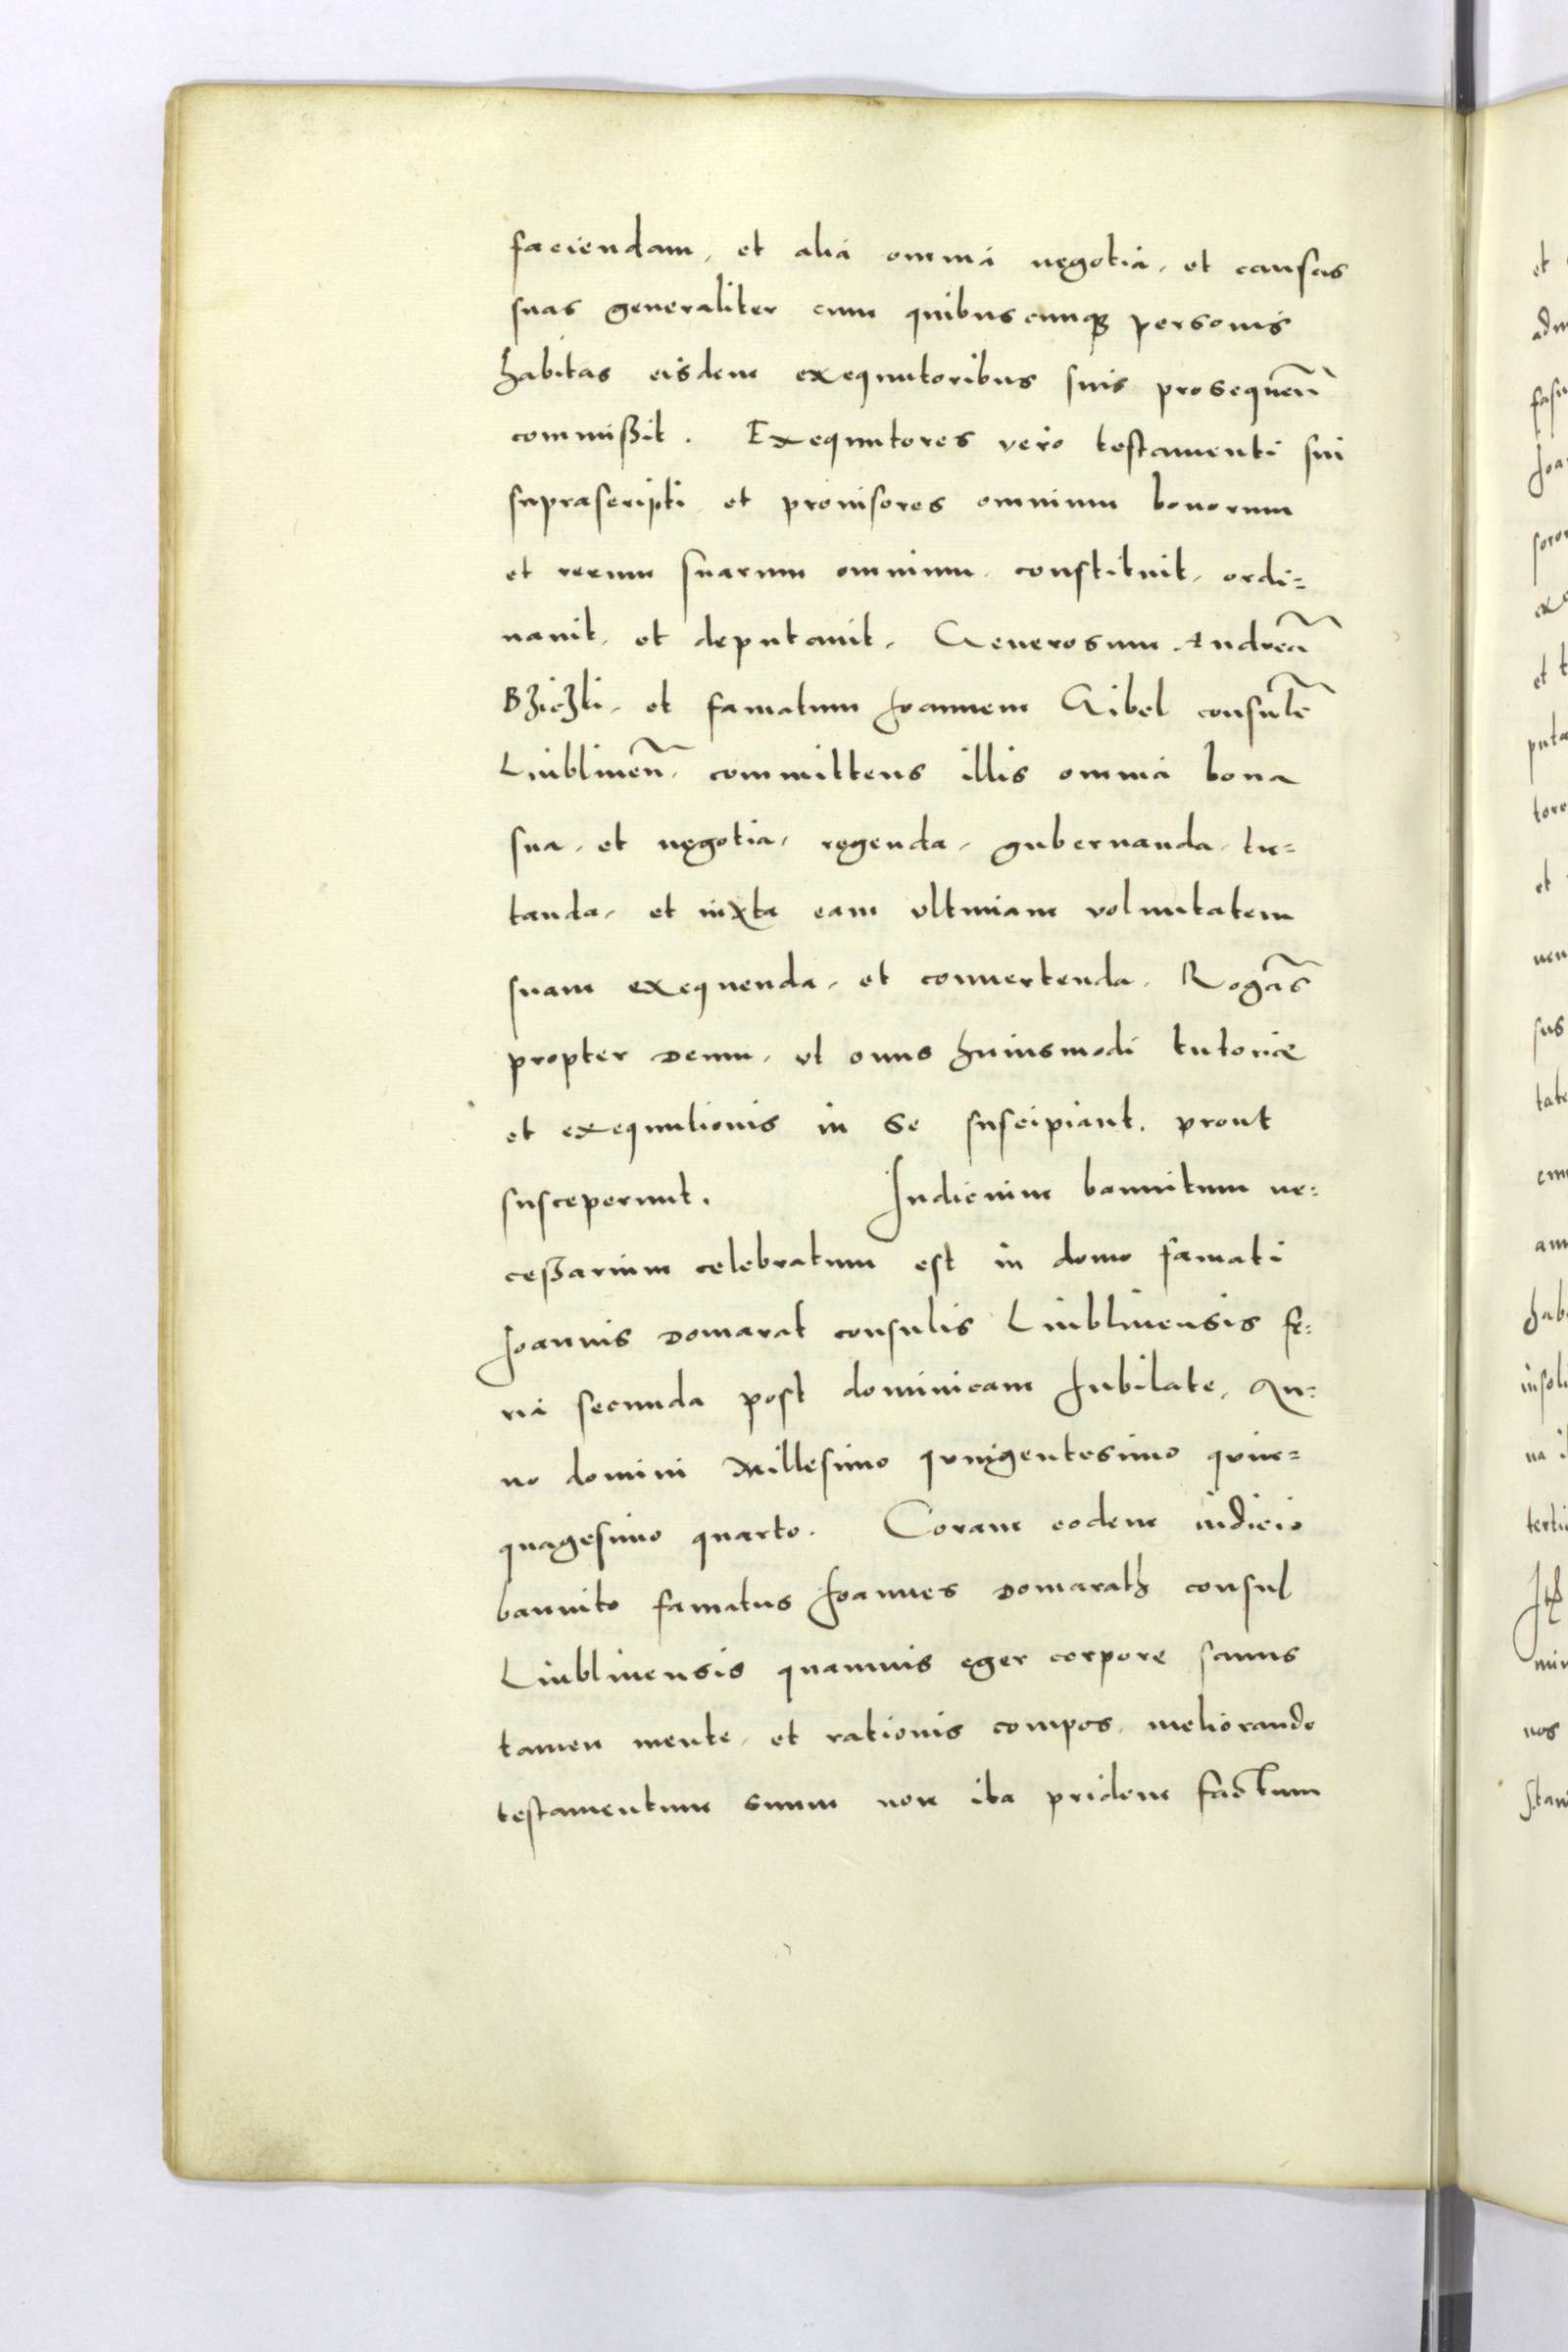 faciendam, et alia omnia negotia, et causas
suas generaliter cum quibuscunqꝫ personis
habitas eisdem exequutoribus suis prosequen̄
commißit. Exequutores vero testamenti sui
suprascripti et prouisores omnium bonorum
et rerum suarum omnium, constituit, ordi=
nauit, et deputauit, Generosum Andreā
Bziczki, et famatum Joannem Gibel consulē
Liublinen̄, committens illis omnia bona
sua, et negotia, regenda, gubernanda, tu=
tanda, et iuxta eam vltimam voluntatem
suam exequenda, et conuertenda, Rogās
propter Deum, vt onus huiusmodi tutoriæ
et exequutionis in se suscipiant, prout
susceperunt. Iudicium bannitum ne=
ceßarium celebratum est in domo famati
Joannis Domarat consulis Liublinensis fe=
ria secunda post dominicam Jubilate, An=
no domini Millesimo quingentesimo quin=
quagesimo quarto. Coram eodem iudicio
bannito famatus Joannes Domarath consul
Liublinensis quamuis eger corpore sanus
tamen mente, et rationis compos, meliorando
testamentum suum non ita pridem factum